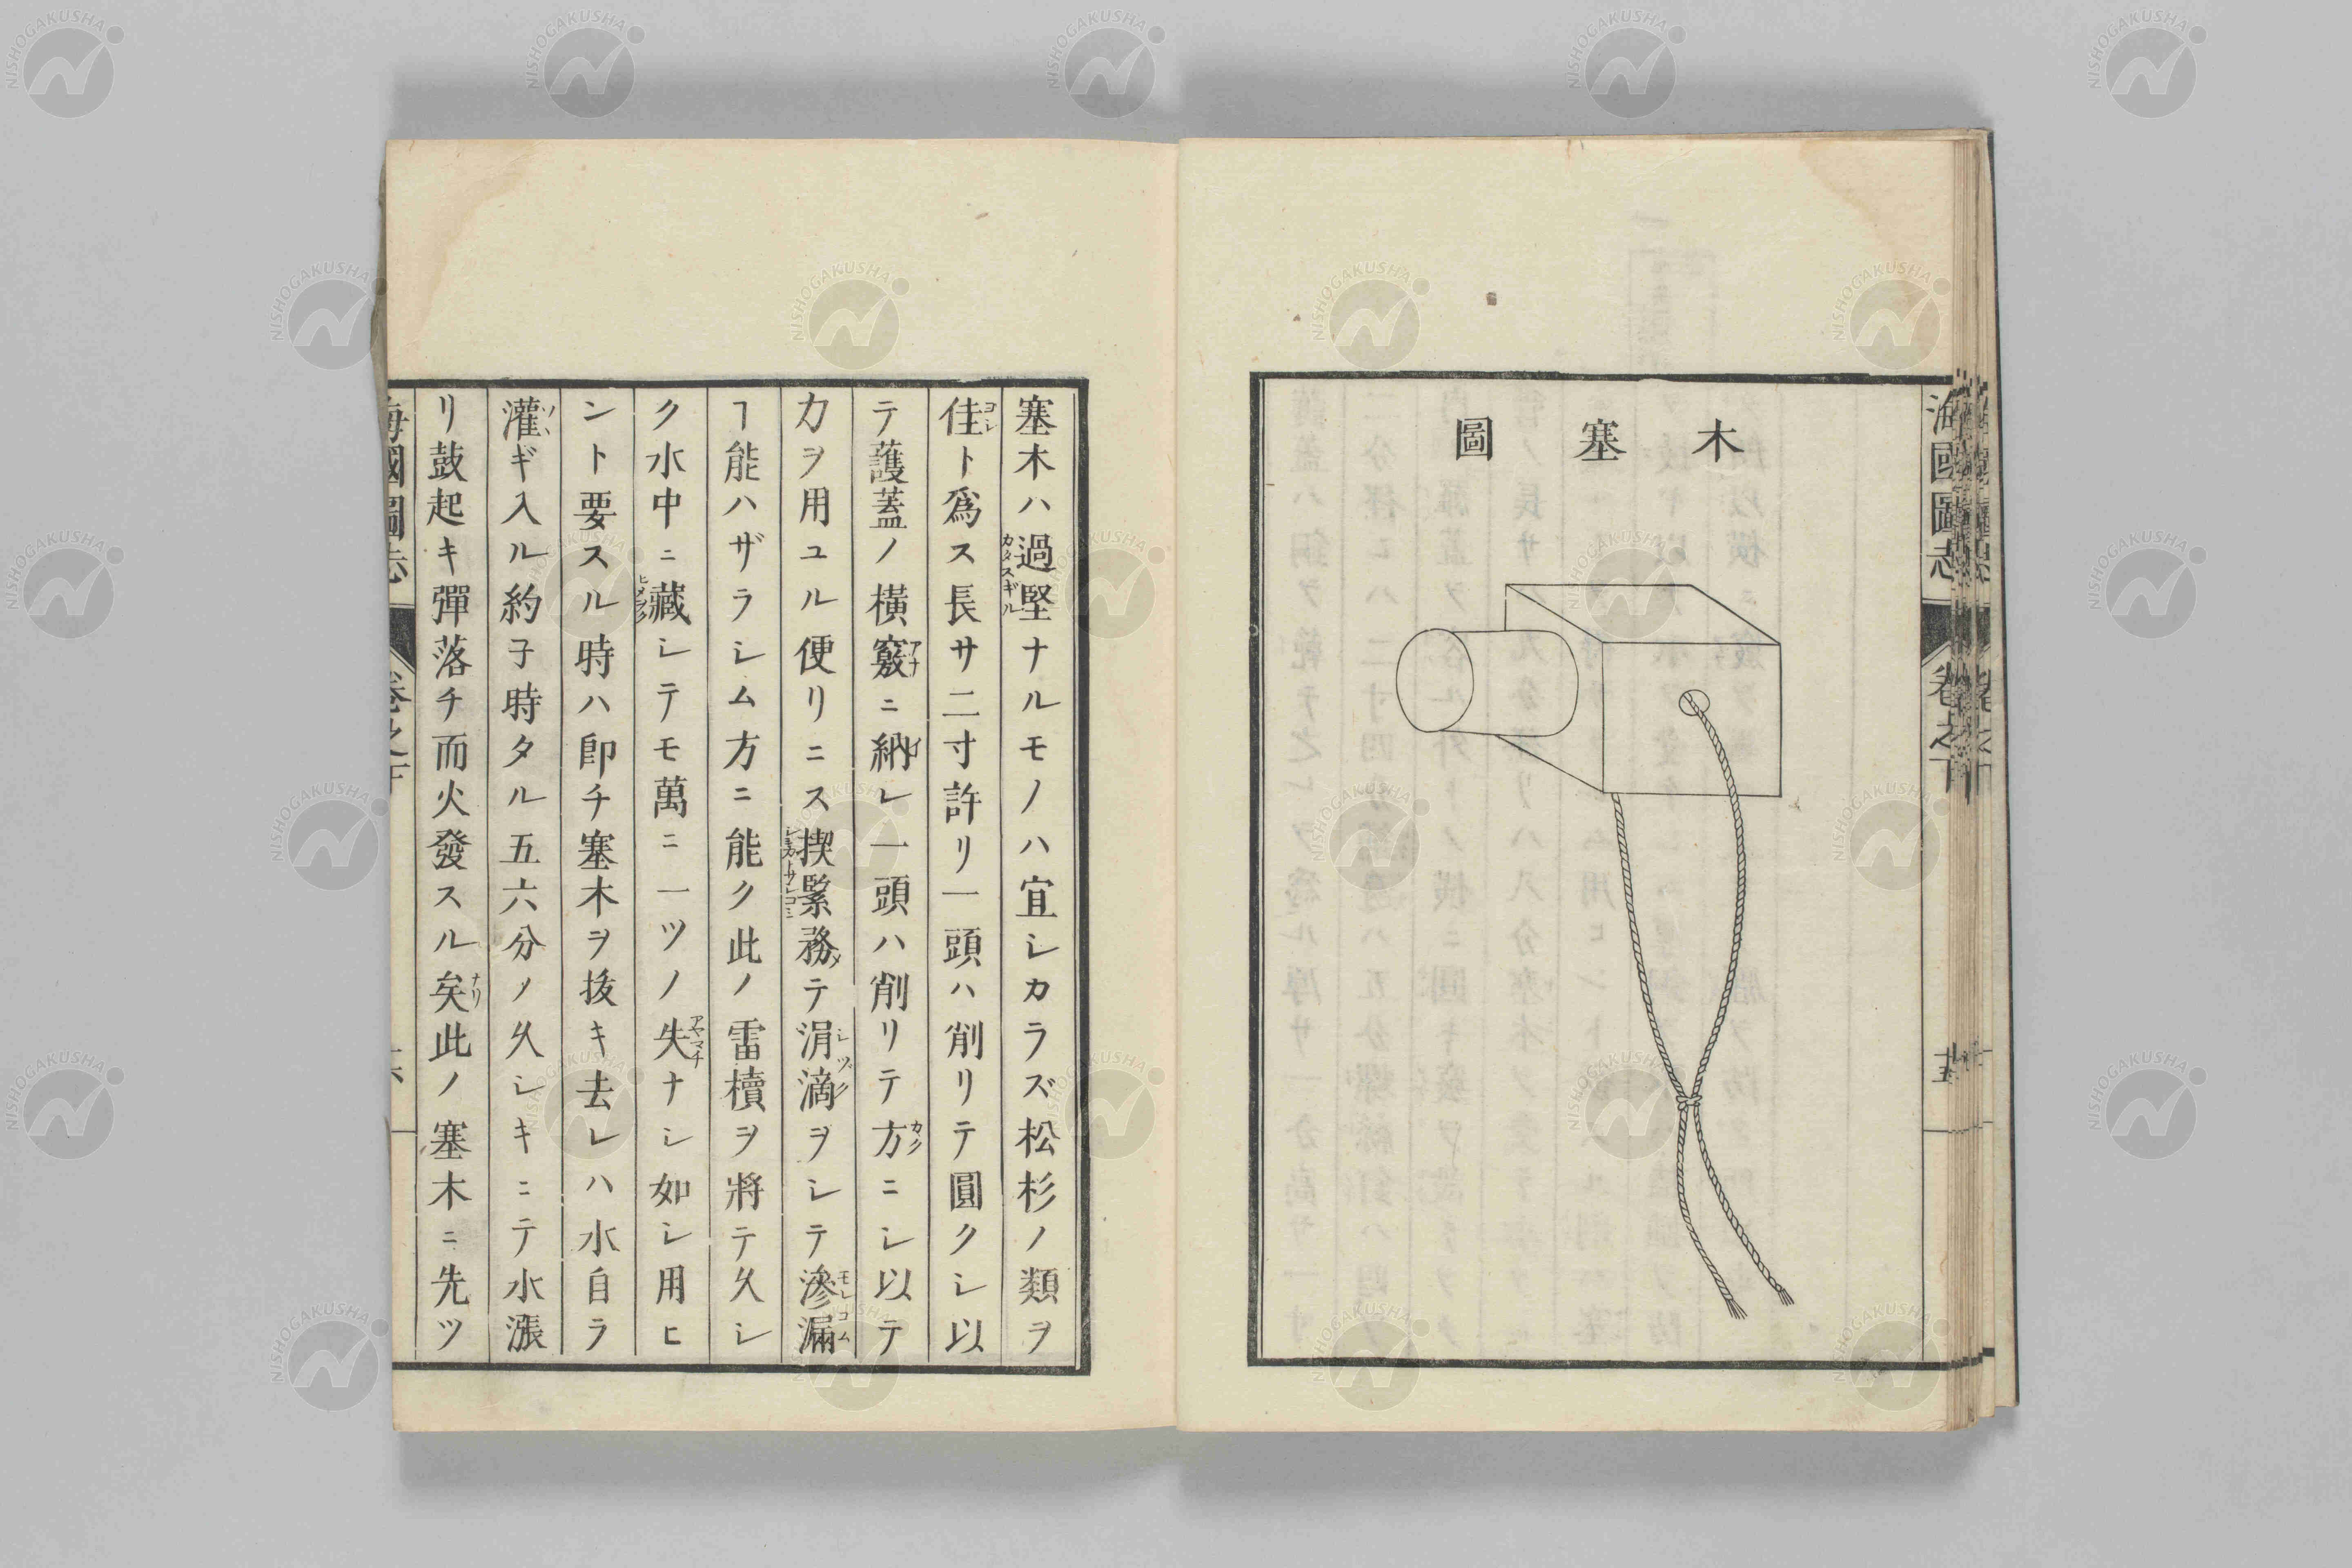 木塞圖
海國圖志
卷之下
塞木ハ過堅ナルモノハ宜シカラズ松杉ノ類ヲ
佳ト爲ス長サ二寸許リ一頭ハ削リテ圓クシ以
テ護蓋ノ橫竅ニ納レ一頭ハ削リテ方ニシ以テ
力ヲ用ユル便リニス揳緊務テ涓滴ヲシテ滲漏
ヿ能ハザラシム方ニ能ク此ノ雷櫝ヲ將テ久シ
ク水中ニ藏シテモ萬ニ一ツノ失ナシ如シ用ヒ
ント要スル時ハ卽チ塞木ヲ拔キ去レハ水自ラ
灌ギ入ル約子時タル五六分ノ久シキニテ水漲
リ鼓起キ彈落チ而火發スル矣此ノ塞木ニ先ツ
海國圖志
卷之下
NISHOGAKUSHA